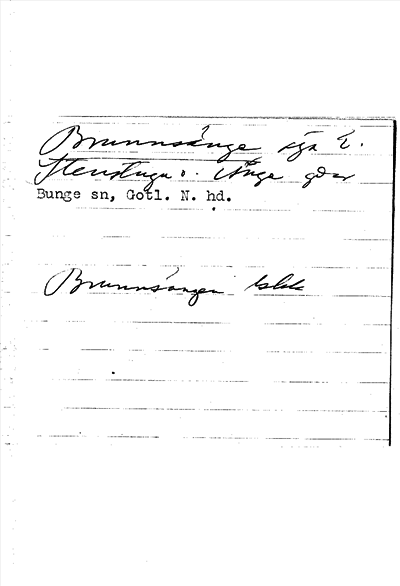 Brunnsänge äga t.
Stenstuga o. Änge gdar
Bunge sn, Gotl. N. hd.
Brunnsängen